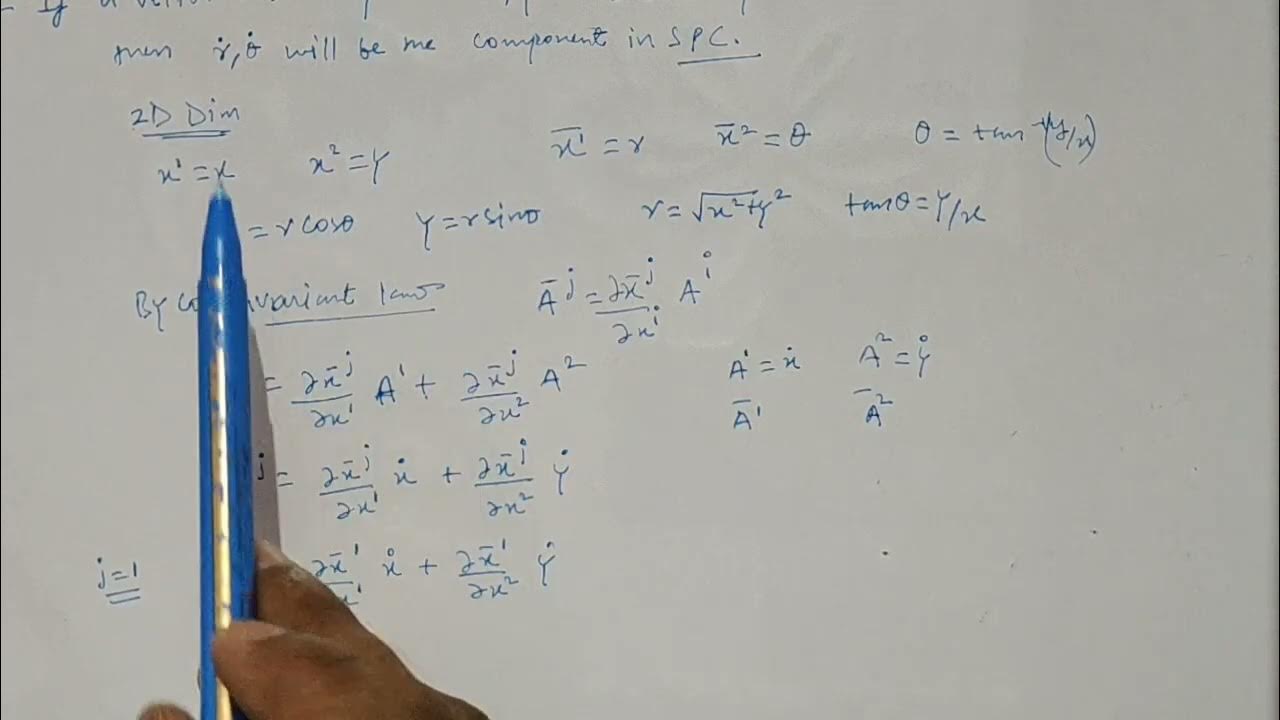 If a
then ṙ, θ̇ will be the component in SPC.
2D Dim
x¹ = x x² = y x̄¹ = r x̄² = θ θ = tan⁻¹(y/x)
= r cosθ y = r sinθ r = √x²+y² tanθ = y/x
By variant law Ā^j = ∂x̄^j/∂x^i A^i
= ∂x̄^j/∂x¹ A¹ + ∂x̄^j/∂x² A² A¹ = ẋ A² = ẏ
Ā¹ Ā²
j = ∂x̄^j/∂x¹ ẋ + ∂x̄^j/∂x² ẏ
j=1 ∂x̄¹/∂x¹ ẋ + ∂x̄¹/∂x² ẏ